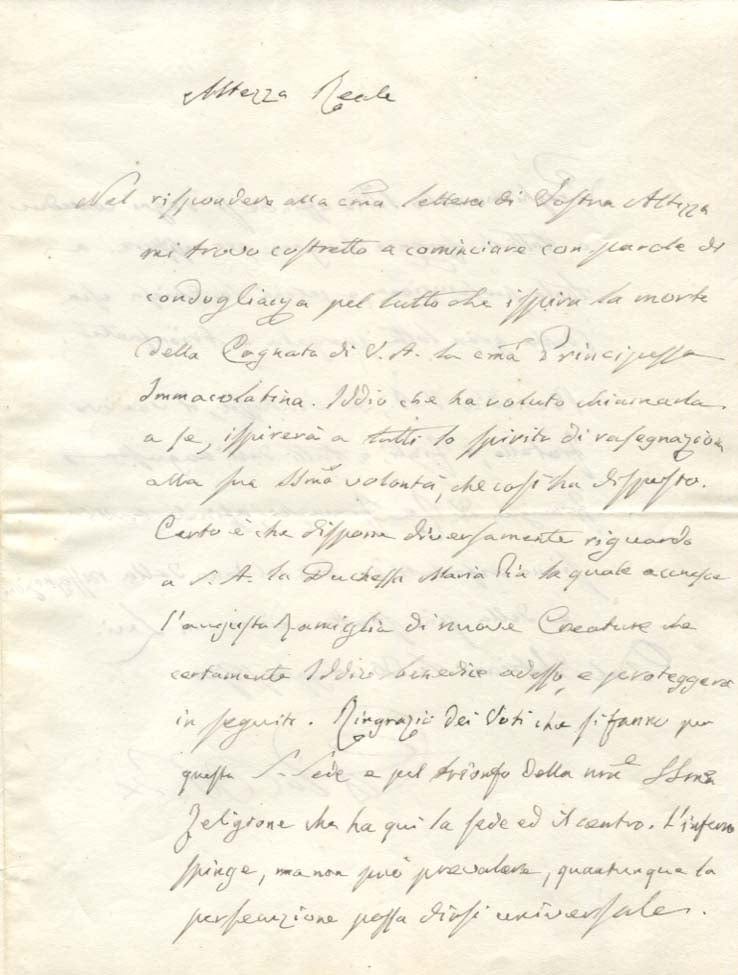 Altezza Reale
Nel rispondere alla cma lettera di Vostra Altezza
mi trovo costretto a cominciare con parole di
condoglianza pel lutto che ispira la morte
della Cognata di V. A. la cma Principessa
Immacolatina. Iddio che ha voluto chiamarla
a se, ispirerà a tutti lo spirito di rasegnazione
alla sua SSma volontà, che così ha disposto.
Certo è che dispone diversamente riguardo
a S. A. la Duchessa Maria Pia la quale accresce
l'augusta Famiglia di nuove Creature che
certamente Iddio benedice adesso, e proteggerà
in seguito. Ringrazio dei Voti che si fanno per
questa S. Sede e pel trionfo della nra SSma
Religione che ha qui la sede ed il centro. L'inferno
spinge, ma non può prevalere, quantunque la
persecuzione possa dirsi universale.